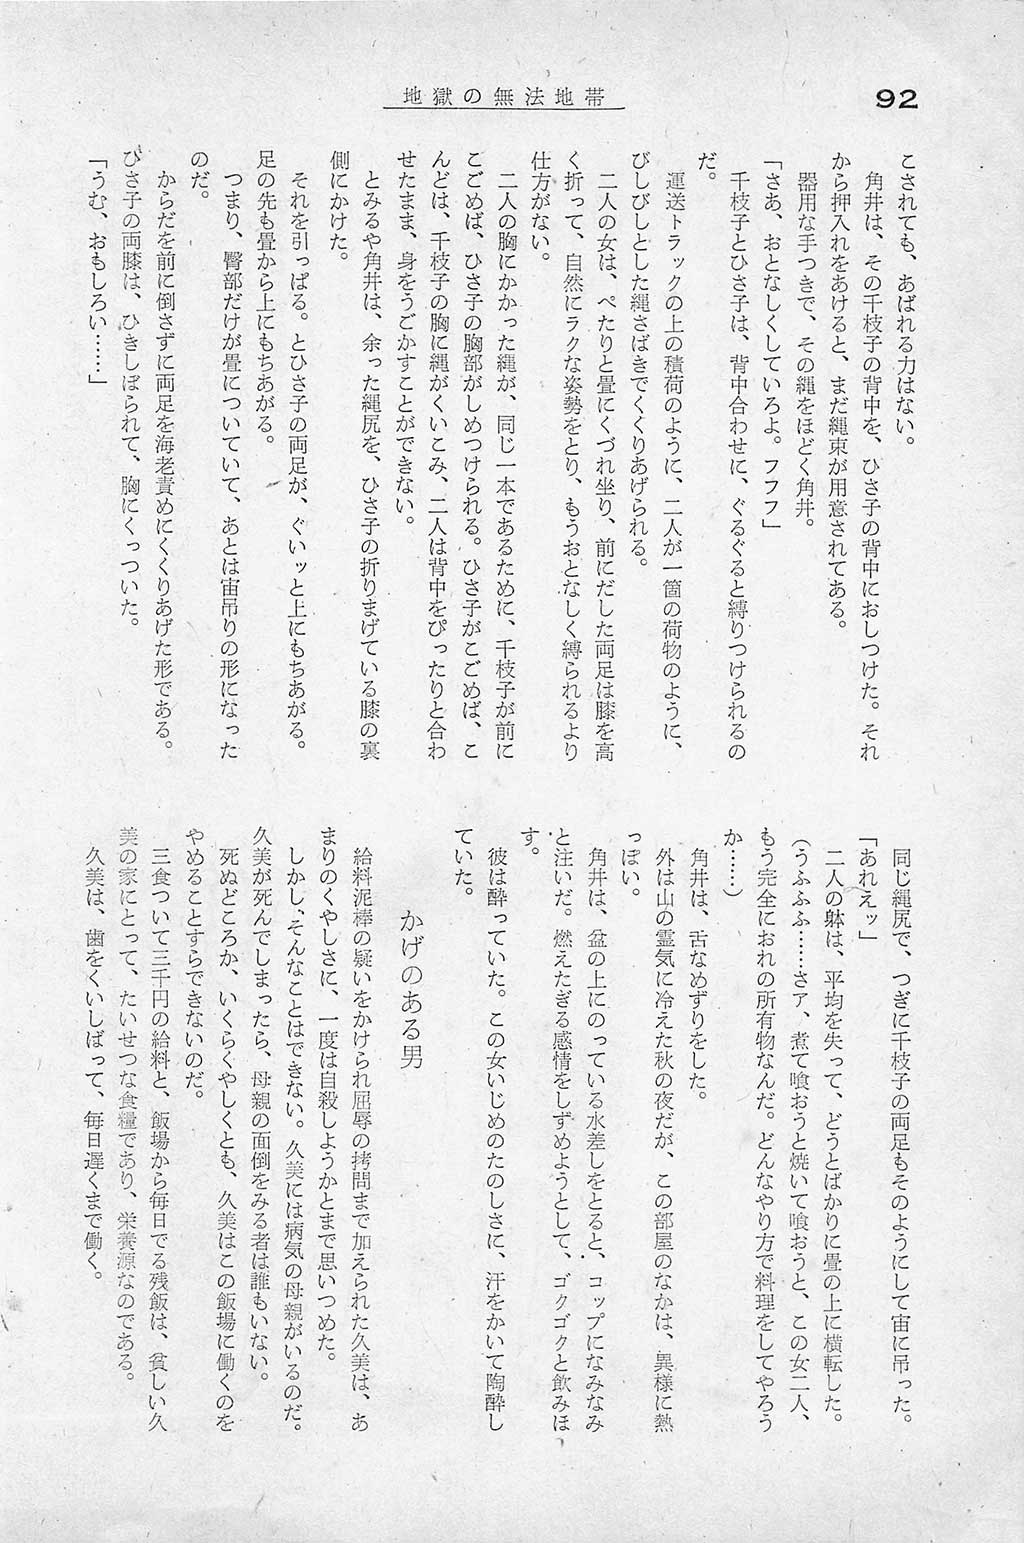 92
地獄の無法地帯
こされても、あばれる力はない。
角井は、その千枝子の背中を、ひさ子の背中におしつけた。それ
から押入れをあけると、まだ縄束が用意されてある。
器用な手つきで、その縄をほどく角井。
「さあ、おとなしくしていろよ。フフフ」
千枝子とひさ子は、背中合わせに、ぐるぐると縛りつけられるの
だ。
運送トラックの上の積荷のように、二人が一箇の荷物のように、
びしびしとした縄さばきでくくりあげられる。
二人の女は、ぺたりと畳にくづれ坐り、前にだした両足は膝を高
く折って、自然にラクな姿勢をとり、もうおとなしく縛られるより
仕方がない。
二人の胸にかかった縄が、同じ一本であるために、千枝子が前に
こごめば、ひさ子の胸部がしめつけられる。ひさ子がこごめば、こ
んどは、千枝子の胸に縄がくいこみ、二人は背中をぴったりと合わ
せたまま、身をうごかすことができない。
とみるや角井は、余った縄尻を、ひさ子の折りまげている膝の裏
側にかけた。
それを引っぱる。とひさ子の両足が、ぐいッと上にもちあがる。
足の先も畳から上にもちあがる。
つまり、臀部だけが畳についていて、あとは宙吊りの形になった
のだ。
からだを前に倒さずに両足を海老責めにくくりあげた形である。
ひさ子の両膝は、ひきしぼられて、胸にくっついた。
「うむ、おもしろい……」
同じ縄尻で、つぎに千枝子の両足もそのようにして宙に吊った。
「あれえッ」
二人の躰は、平均を失って、どうとばかりに畳の上に横転した。
（うふふふ……さア、煮て喰おうと焼いて喰おうと、この女二人、
もう完全におれの所有物なんだ。どんなやり方で料理をしてやろう
か……）
角井は、舌なめずりをした。
外は山の霊気に冷えた秋の夜だが、この部屋のなかは、異様に熱
っぽい。
角井は、盆の上にのっている水差しをとると、コップになみなみ
と注いだ。燃えたぎる感情をしずめようとして、ゴクゴクと飲みほ
す。
彼は酔っていた。この女いじめのたのしさに、汗をかいて陶酔し
ていた。
かげのある男
給料泥棒の疑いをかけられ屈辱の拷問まで加えられた久美は、あ
まりのくやしさに、一度は自殺しようかとまで思いつめた。
しかし、そんなことはできない。久美には病気の母親がいるのだ。
久美が死んでしまったら、母親の面倒をみる者は誰もいない。
死ぬどころか、いくらくやしくとも、久美はこの飯場に働くのを
やめることすらできないのだ。
三食ついて三千円の給料と、飯場から毎日でる残飯は、貧しい久
美の家にとって、たいせつな食糧であり、栄養源なのである。
久美は、歯をくいしばって、毎日遅くまで働く。